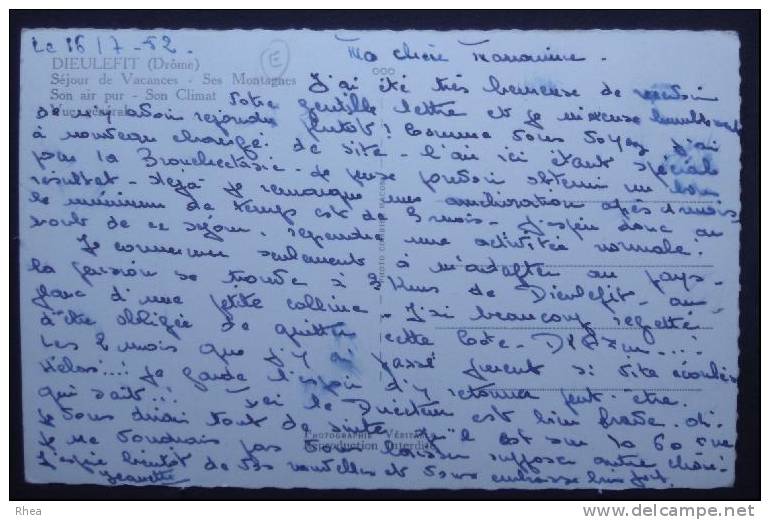 Le 16/7-52.
Ma chère Marraine.
DIEULEFIT (Drôme)
Séjour de Vacances - Ses Montagnes
Son air pur - Son Climat
Vue générale
J'ai été très heureuse de recevoir
votre gentille lettre et je m'excuse
de n'y avoir répondu plutôt! Comme vous voyez j'ai
à nouveau changé de site - l'air ici étant spécial
pour la Bronchectasie - je pense pouvoir obtenir un bon
résultat - déjà je remarque une amélioration après 1 mois
le minimum de temps est de 3 mois - J'espère donc au
sortir de ce séjour reprendre une activité normale!
Je commence seulement à m'adapter au pays -
la pension se trouve à 3 Kms de Dieulefit - au
flanc d'une petite colline - J'ai beaucoup regretté
d'être obligée de quitter cette Côte - D'Azur...!
Les 2 mois que j'y ai passé furent si vite écoulés
Hélas...! Je garde l'espoir d'y retourner peut-être.
qui sait...! Ici le Directeur est bien brave. oh.
Je vous dirais tout de suite qu'il est sur la 60aine
Je ne voudrais pas vous laisser supposer autre chose -
J'espère bientôt de vos nouvelles et vous embrasse bien fort.
Jeannette
PHOTOGRAPHIE VÉRITABLE
Reproduction Interdite
Rhea
delcampe.net